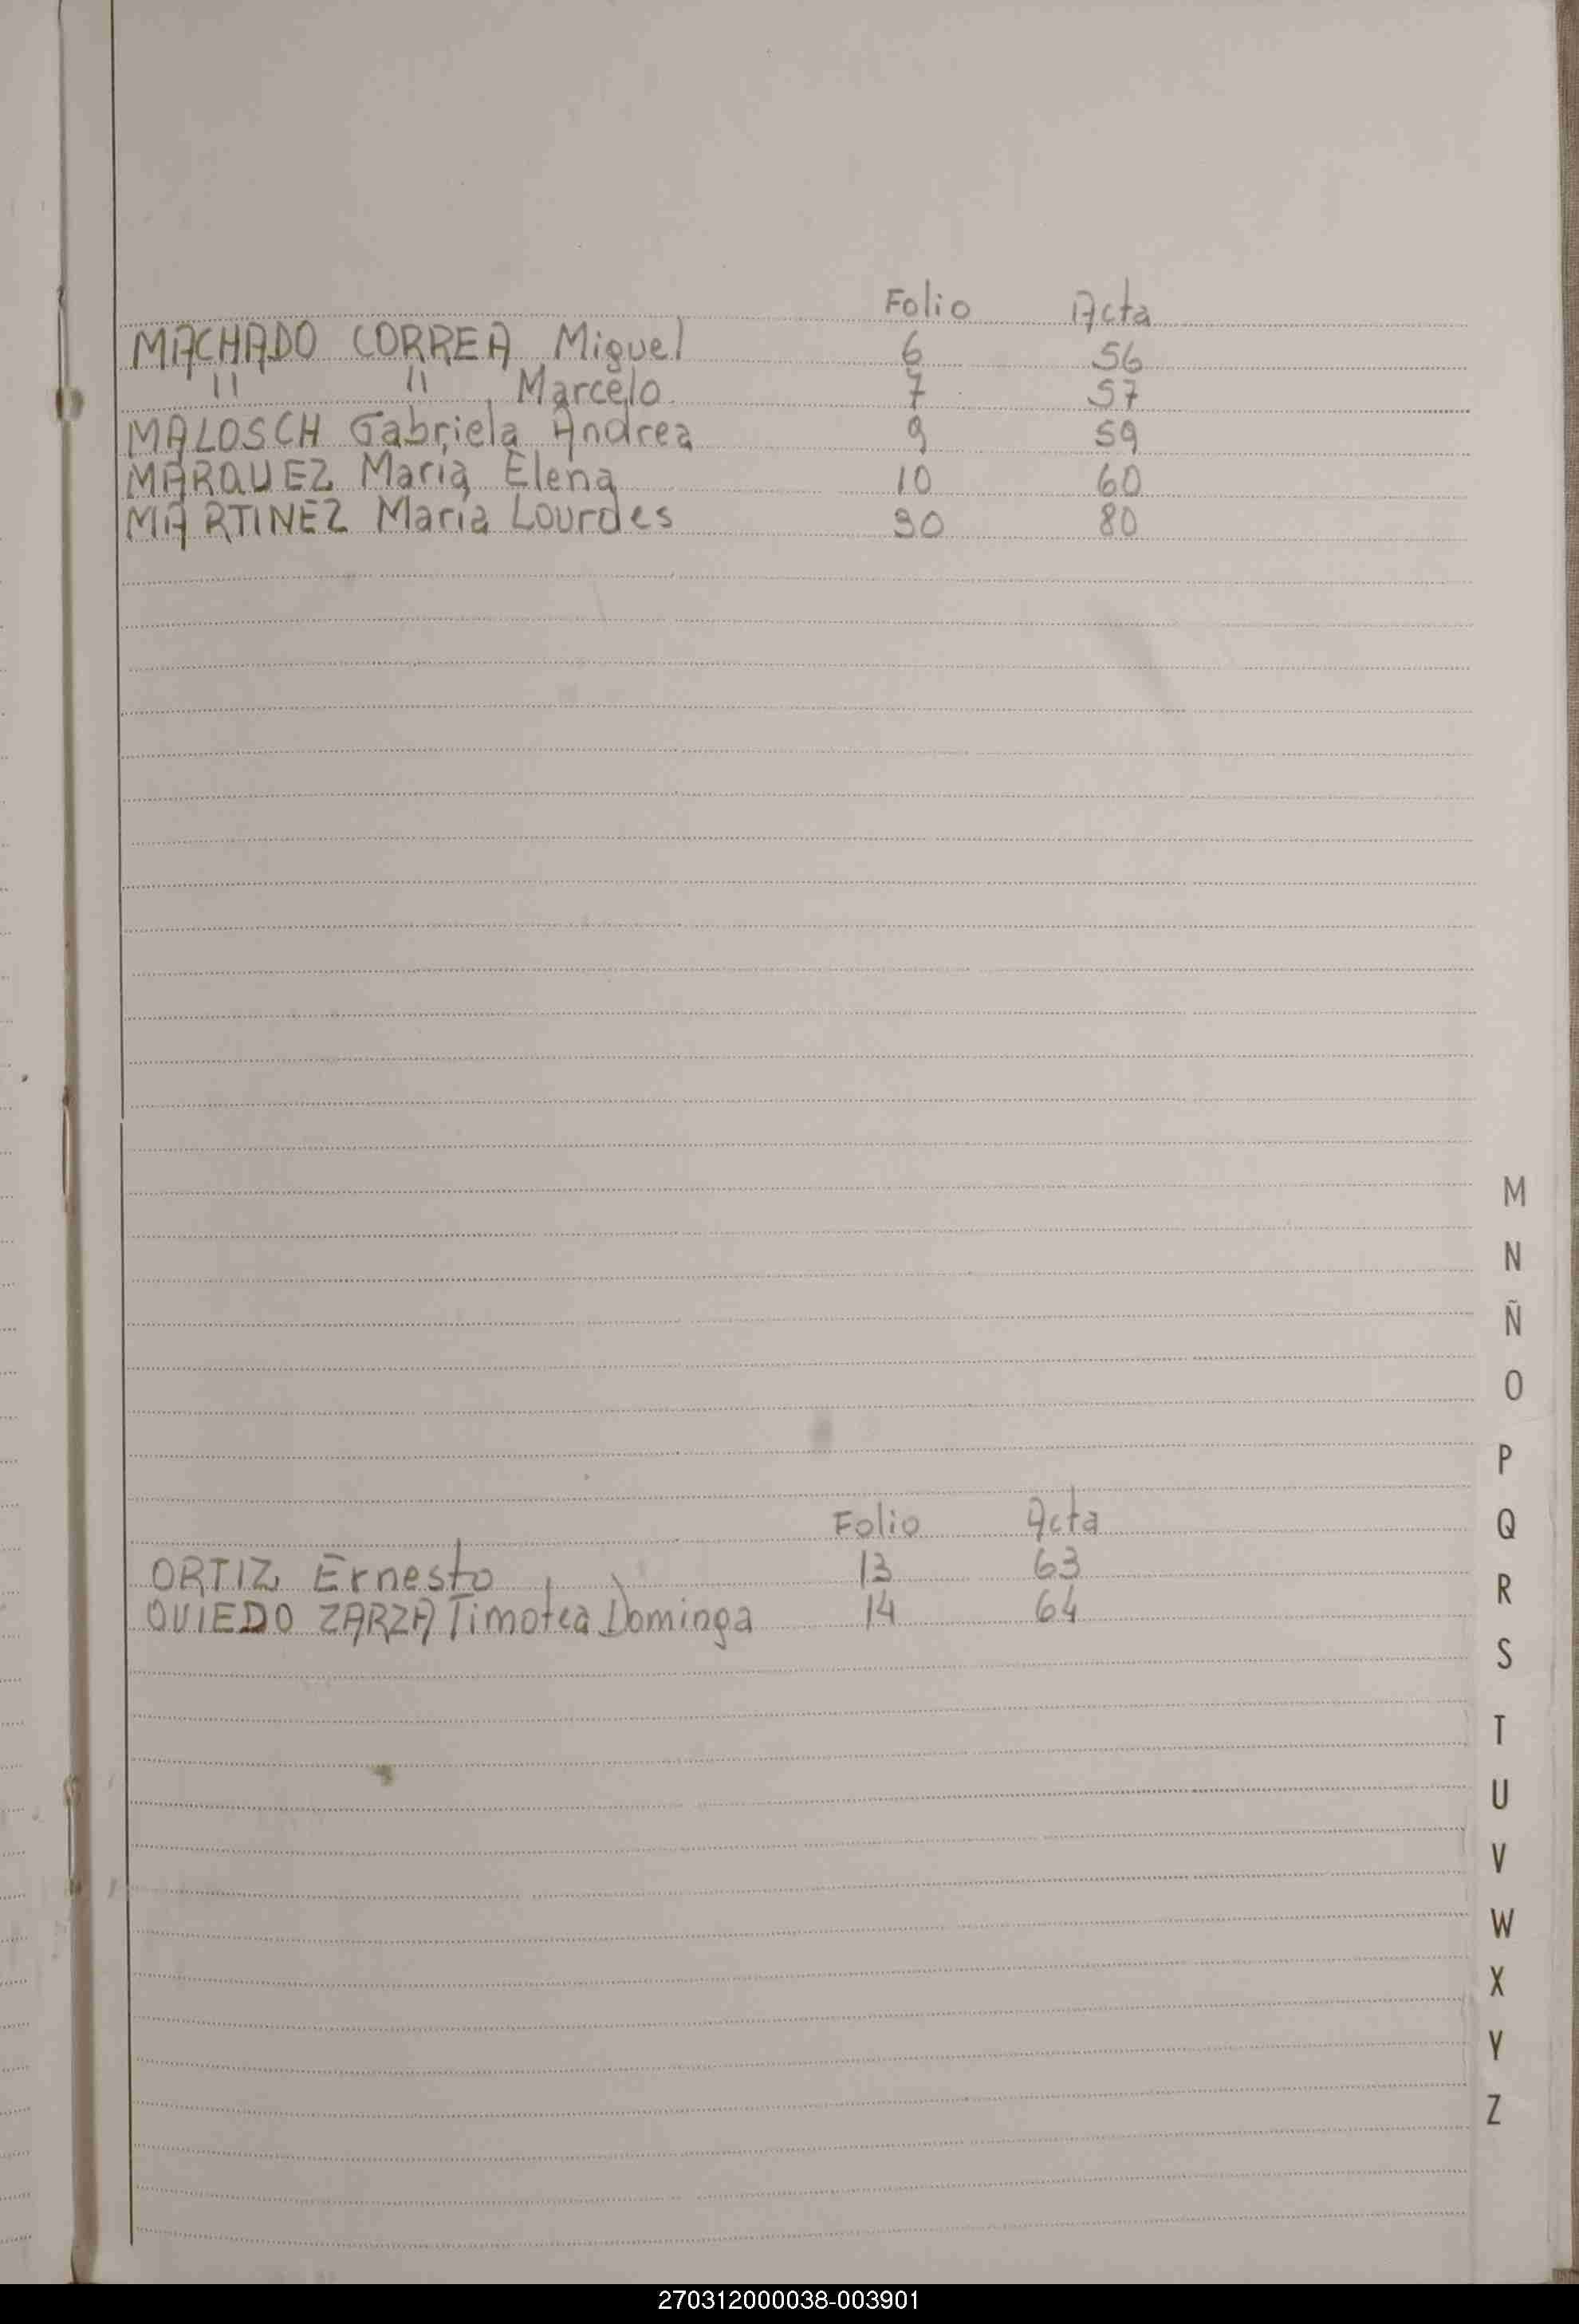 Folio Acta
MACHADO CORREA Miguel 6 56
" " Marcelo 7 57
MALOSCH Gabriela Andrea 9 59
MARQUEZ María Elena 10 60
MARTINEZ María Lourdes 30 80
M
N
Ñ
O
P
Folio Acta
Q
ORTIZ Ernesto 13 63
R
OVIEDO ZARZA Timotea Dominga 14 64
S
T
U
V
W
X
Y
Z
270312000038-003901